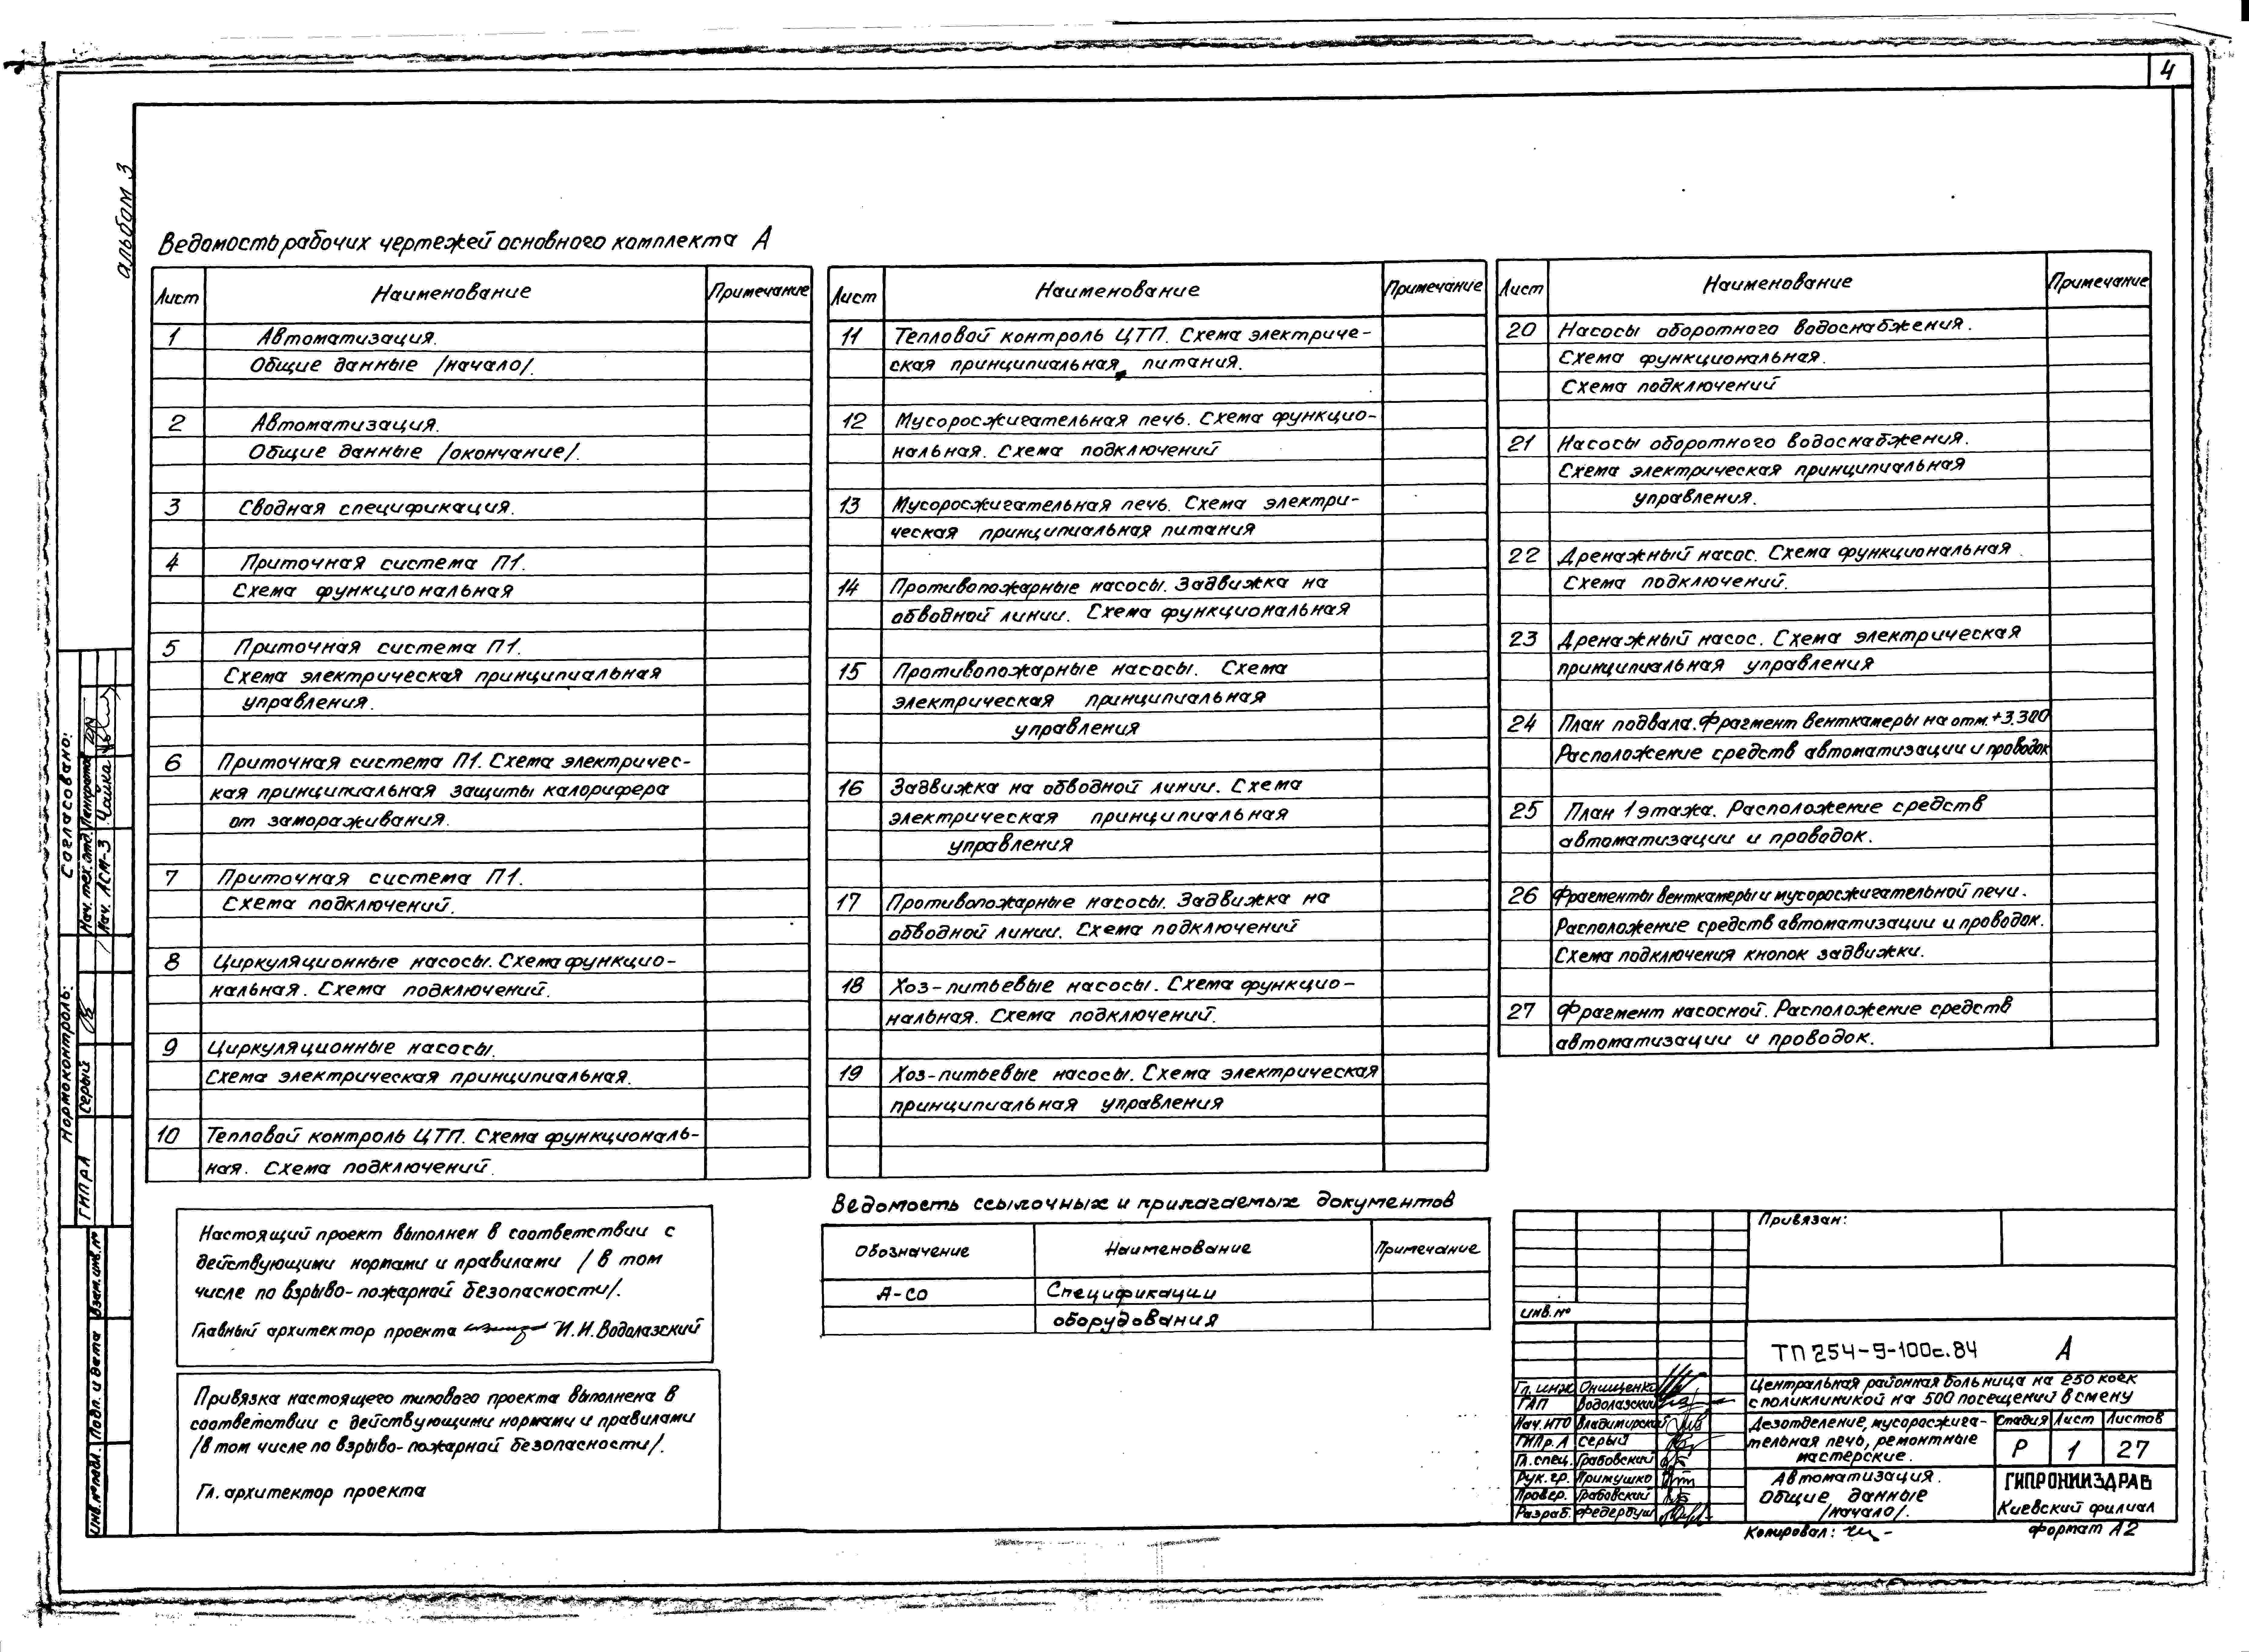 4
альбом 3
Ведомость рабочих чертежей основного комплекта А
Лист Наименование Примечание
1 Автоматизация.
Общие данные /начало/.
2 Автоматизация.
Общие данные /окончание/.
3 Сводная спецификация.
4 Приточная система П1.
Схема функциональная
5 Приточная система П1.
Схема электрическая принципиальная
управления.
6 Приточная система П1. Схема электричес-
кая принципиальная защиты калорифера
от замораживания.
7 Приточная система П1.
Схема подключений.
8 Циркуляционные насосы. Схема функцио-
нальная. Схема подключений.
9 Циркуляционные насосы.
Схема электрическая принципиальная.
10 Тепловой контроль ЦТП. Схема функциональ-
ная. Схема подключений.
Лист Наименование Примечание
11 Тепловой контроль ЦТП. Схема электриче-
ская принципиальная питания.
12 Мусоросжигательная печь. Схема функцио-
нальная. Схема подключений
13 Мусоросжигательная печь. Схема электри-
ческая принципиальная питания
14 Противопожарные насосы. Задвижка на
обводной линии. Схема функциональная
15 Противопожарные насосы. Схема
электрическая принципиальная
управления
16 Задвижка на обводной линии. Схема
электрическая принципиальная
управления
17 Противопожарные насосы. Задвижка на
обводной линии. Схема подключений
18 Хоз-питьевые насосы. Схема функцио-
нальная. Схема подключений.
19 Хоз-питьевые насосы. Схема электрическая
принципиальная управления
Лист Наименование Примечание
20 Насосы оборотного водоснабжения.
Схема функциональная.
Схема подключений
21 Насосы оборотного водоснабжения.
Схема электрическая принципиальная
управления.
22 Дренажный насос. Схема функциональная.
Схема подключений.
23 Дренажный насос. Схема электрическая
принципиальная управления
24 План подвала. Фрагмент венткамеры на отм. +3.300
Расположение средств автоматизации и проводок
25 План 1 этажа. Расположение средств
автоматизации и проводок.
26 Фрагменты венткамеры и мусоросжигательной печи.
Расположение средств автоматизации и проводок.
Схема подключения кнопок задвижки.
27 Фрагмент насосной. Расположение средств
автоматизации и проводок.
Настоящий проект выполнен в соответствии с
действующими нормами и правилами /в том
числе по взрыво-пожарной безопасности/.
Главный архитектор проекта И.И. Водолазский
Привязка настоящего типового проекта выполнена в
соответствии с действующими нормами и правилами
/в том числе по взрыво-пожарной безопасности/.
Гл. архитектор проекта
Ведомость ссылочных и прилагаемых документов
Обозначение Наименование Примечание
А-СО Спецификации
оборудования
Привязан:
инв.№
ТП 254-9-100с.84 А
Центральная районная больница на 250 коек
с поликлиникой на 500 посещений в смену
Дезотделение, мусоросжига-
тельная печь, ремонтные
мастерские.
Стадия Лист Листов
Р 1 27
Автоматизация.
Общие данные
/начало/.
ГИПРОНИИЗДРАВ
Киевский филиал
Гл. инж Онищенко
ГАП Водолазский
Нач. ИТО Владимирский
ГИПр.А Серый
Гл. спец. Грабовский
Рук. гр. Примушко
Провер. Грабовский
Разраб. Федербуш
Копировал:
формат А2
Согласовано:
Нач. тех. отд. Панкратов
Нач. АСМ-3 Чайка
Нормоконтроль:
ГИПрА Серый
Инв.№ подл. Подп. и дата Взам.инв.№